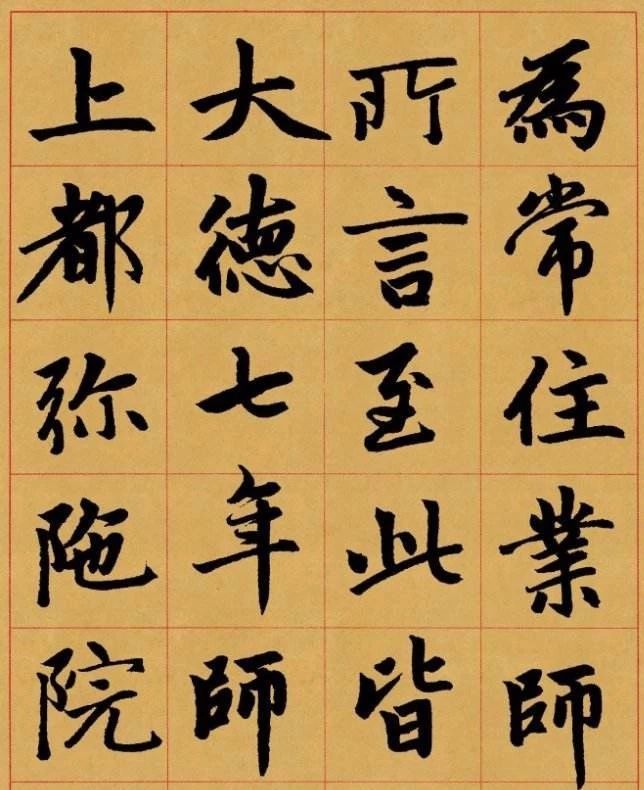 為常住業師
所言至此皆
大德七年師
上都弥陁院